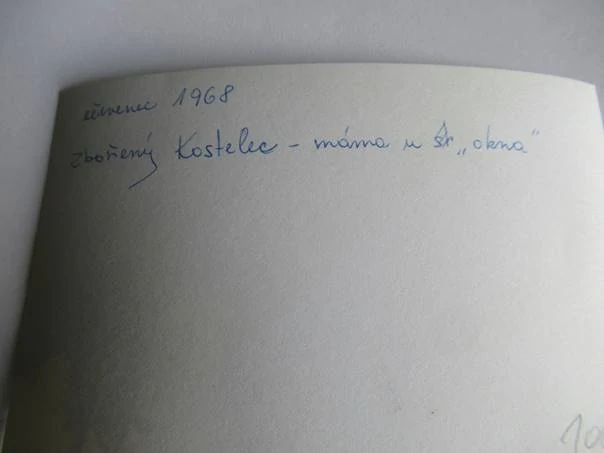 červenec 1968
Zbořený Kostelec – máma u „okna"
10